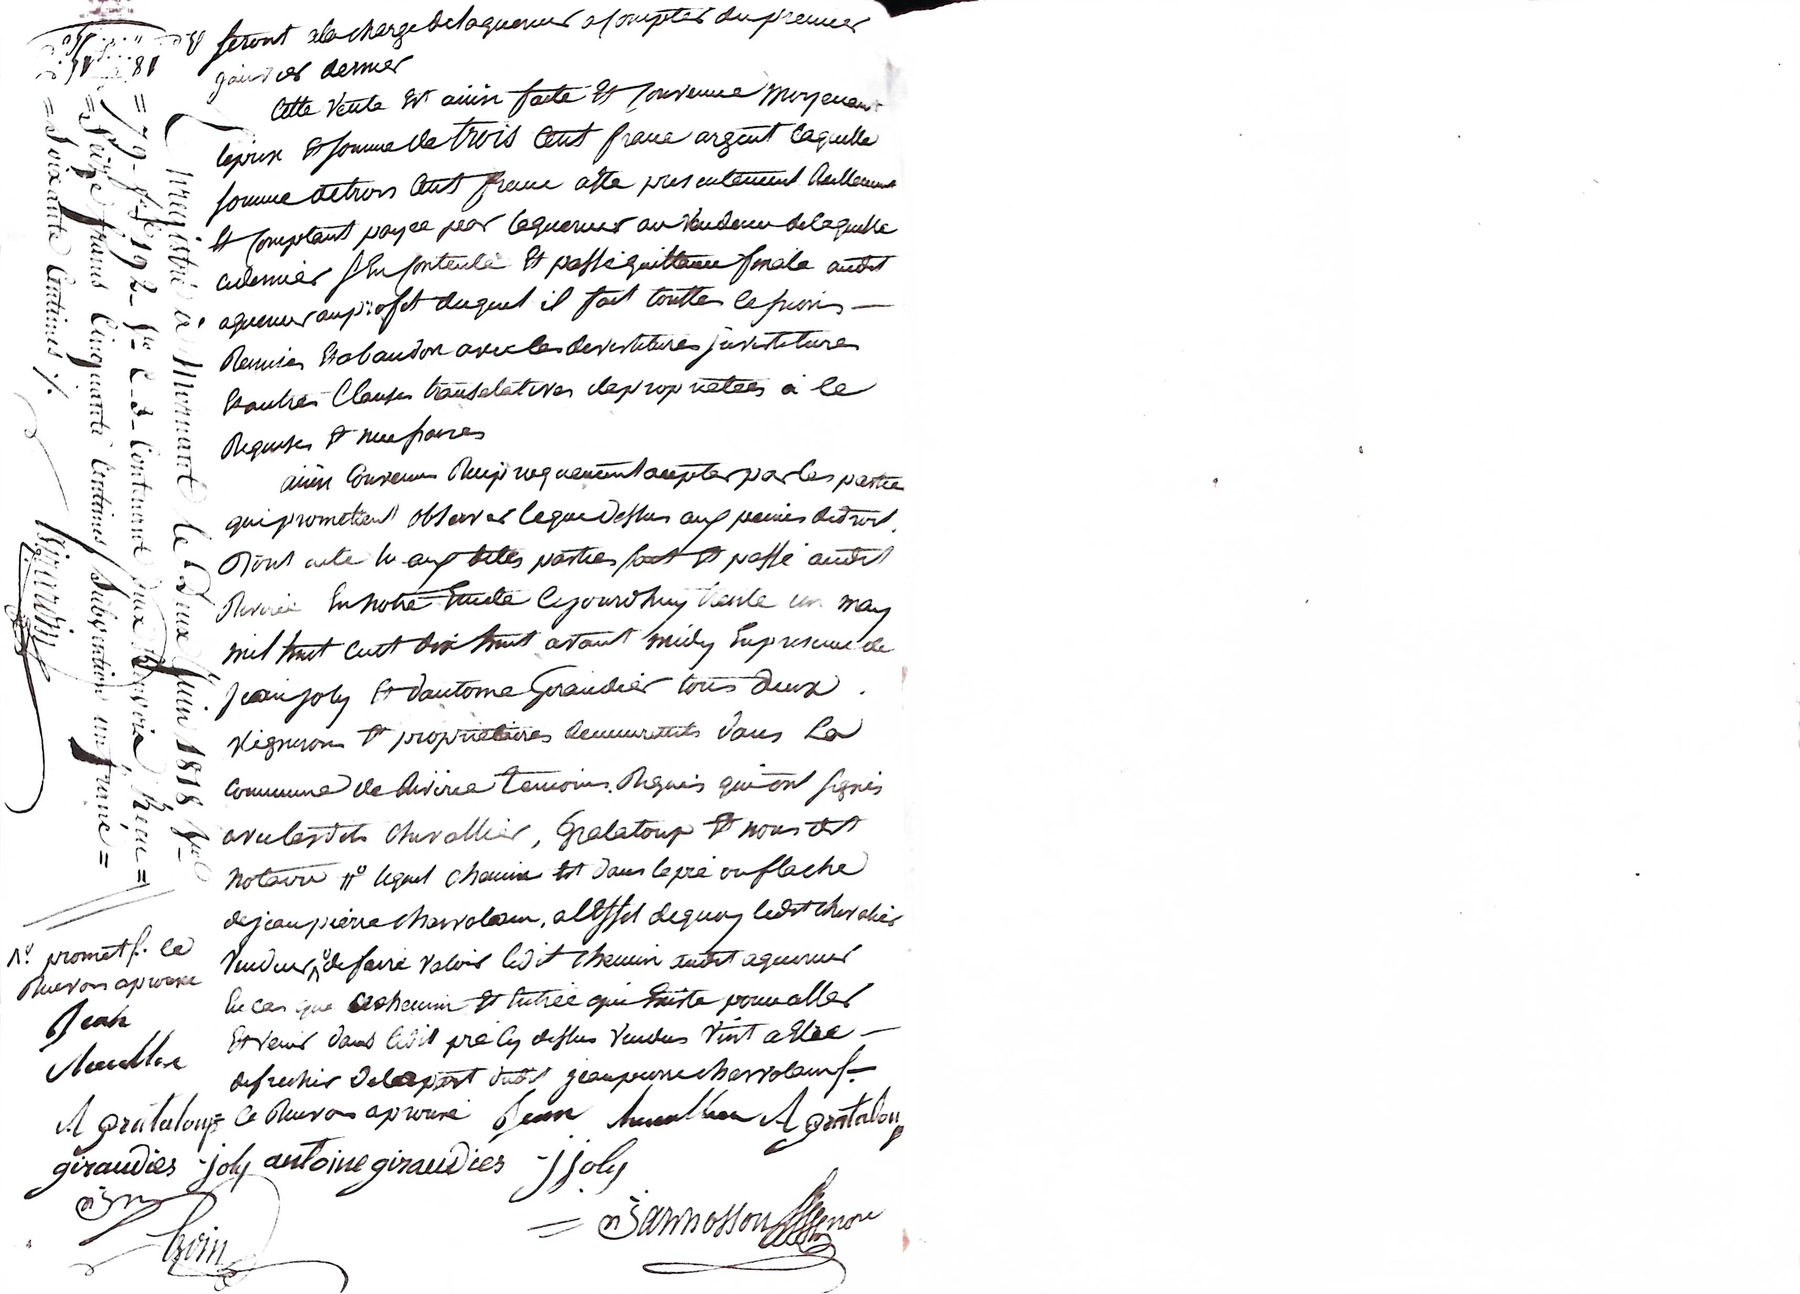 seront a la charge de laquereur a Compter du premier
janvier dernier
Cette Vente Est ainsi faite Et Convenue Moyenant
le prix Et somme de trois Cent franc argent laquelle
somme de trois Cent franc a été presentement Reellement
Et Comptant payée par laquereur au Vendeur de laquelle
ce dernier s'En Contente Et passe quittance finale audit
aquereur au profit duquel il fait touttes cessions —
Remises Et abandon avec les devestitures investitures
Et autres Clauses translatives de proprietées à ce
Requises Et necessaires
ainsi Convenu Reciproquement accepter par les partie
qui promettent observer ce que Dessus aux peines de droit.
Dont acte lu aux dites parties fait Et passé audit
Riverie En notre Etude Cejourd'huy trente un may
mil huit cent dix huit avant midy En presence de
Jean joly Et d'antoine Giraudier tous deux
Vignerons Et proprietaires demeurants dans La
Commune de Riverie temoins Requis qui ont signés
avec lesdits chevallier, Grataloup Et nous dit
Notaire lequel chemin Est dans le pré ou flache
de jean pierre charvolin, a l'Effet de quoy ledit chevalier
Vendeur de faire valoir ledit chemin audit aquereur
En cas que ce chemin Et Entrée qui Existe pour aller
Et venir dans ledit pré Cy dessus Vendus Vint a Etre —
de la part dudit jean pierre charvolin
ce Renvoi aprouvé Jean A grataloup
giraudier joly antoine giraudier j joly
N.º promet ce
Renvoi aprouvé
Jean
A grataloup
Enregistré à Mornant le Deux Juin 1818
Contenant deux Renvois, Reçu =
= Seize francs Cinquante Centimes Subvention un franc =
= Soixante Centimes ./.